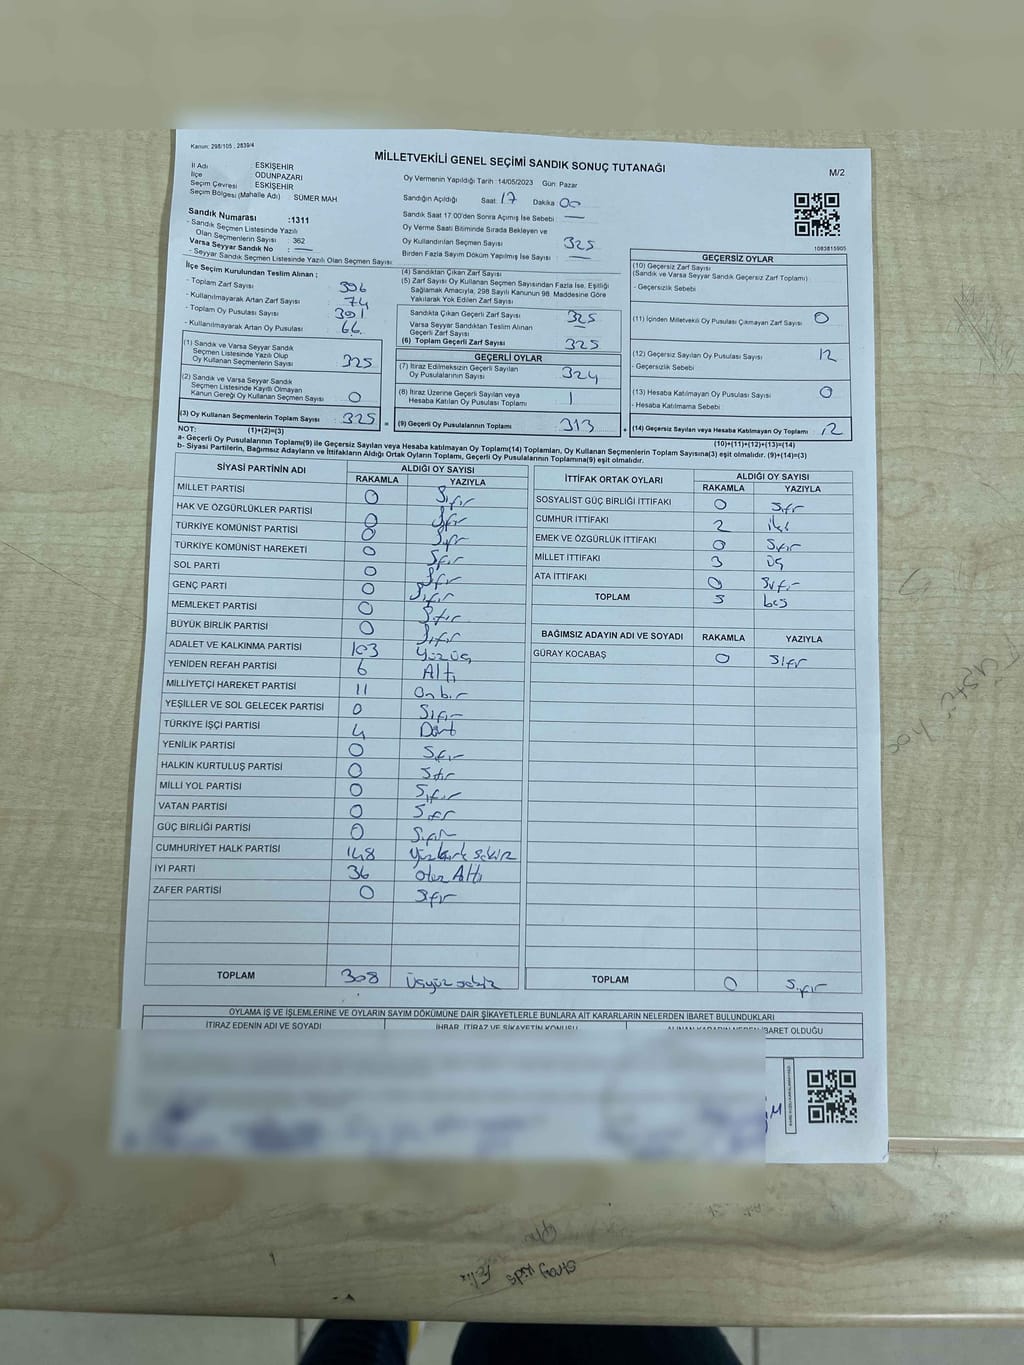 Kanun: 298/105 , 2839/4
MİLLETVEKİLİ GENEL SEÇİMİ SANDIK SONUÇ TUTANAĞI
M/2
İl Adı : ESKİŞEHİR
İlçe ODUNPAZARI
Seçim Çevresi ESKİŞEHİR
Seçim Bölgesi (Mahalle Adı) : SÜMER MAH
Sandık Numarası :1311
- Sandık Seçmen Listesinde Yazılı
Olan Seçmenlerin Sayısı : 362
Varsa Seyyar Sandık No : —
- Seyyar Sandık Seçmen Listesinde Yazılı Olan Seçmen Sayısı:
Oy Vermenin Yapıldığı Tarih :14/05/2023 Gün: Pazar
Sandığın Açıldığı Saat: 17 Dakika : 00
Sandık Saat 17.00'den Sonra Açımış İse Sebebi : —
Oy Verme Saati Bitiminde Sırada Bekleyen ve
Oy Kullandırılan Seçmen Sayısı : 325
Birden Fazla Sayım Döküm Yapılmış İse Sayısı : —
1083815905
İlçe Seçim Kurulundan Teslim Alınan ;
- Toplam Zarf Sayısı : 396
- Kullanılmayarak Artan Zarf Sayısı : 74
- Toplam Oy Pusulası Sayısı : 391
- Kullanılmayarak Artan Oy Pusulası : 66
(1) Sandık ve Varsa Seyyar Sandık
Seçmen Listesinde Yazılı Olup
Oy Kullanan Seçmenlerin Sayısı : 325
(2) Sandık ve Varsa Seyyar Sandık
Seçmen Listesinde Kayıtlı Olmayan
Kanun Gereği Oy Kullanan Seçmen Sayısı : 0
(3) Oy Kullanan Seçmenlerin Toplam Sayısı : 325 =
(4) Sandıktan Çıkan Zarf Sayısı
(5) Zarf Sayısı Oy Kullanan Seçmen Sayısından Fazla İse, Eşitliği
Sağlamak Amacıyla, 298 Sayılı Kanunun 98. Maddesine Göre
Yakılarak Yok Edilen Zarf Sayısı
Sandıkta Çıkan Geçerli Zarf Sayısı : 325
Varsa Seyyar Sandıktan Teslim Alınan
Geçerli Zarf Sayısı : —
(6) Toplam Geçerli Zarf Sayısı : 325
GEÇERLİ OYLAR
(7) İtiraz Edilmeksizin Geçerli Sayılan
Oy Pusulalarının Sayısı : 324
(8) İtiraz Üzerine Geçerli Sayılan veya
Hesaba Katılan Oy Pusulası Toplamı : 1
(9) Geçerli Oy Pusulalarının Toplamı : 313 +
GEÇERSİZ OYLAR
(10) Geçersiz Zarf Sayısı
(Sandık ve Varsa Seyyar Sandık Geçersiz Zarf Toplamı)
- Geçersizlik Sebebi
(11) İçinden Milletvekili Oy Pusulası Çıkmayan Zarf Sayısı : 0
(12) Geçersiz Sayılan Oy Pusulası Sayısı : 12
- Geçersizlik Sebebi
(13) Hesaba Katılmayan Oy Pusulası Sayısı : 0
- Hesaba Katılmama Sebebi
(14) Geçersiz Sayılan veya Hesaba Katılmayan Oy Toplamı : 12
NOT: (1)+(2)=(3)
(10)+(11)+(12)+(13)=(14)
a- Geçerli Oy Pusulalarının Toplamı(9) ile Geçersiz Sayılan veya Hesaba katılmayan Oy Toplamı(14) Toplamları, Oy Kullanan Seçmenlerin Toplam Sayısına(3) eşit olmalıdır. (9)+(14)=(3)
b- Siyasi Partilerin, Bağımsız Adayların ve İttifakların Aldığı Ortak Oyların Toplamı, Geçerli Oy Pusulalarının Toplamına(9) eşit olmalıdır.
SİYASİ PARTİNİN ADI ALDIĞI OY SAYISI
RAKAMLA YAZIYLA
MİLLET PARTİSİ 0 Sıfır
HAK VE ÖZGÜRLÜKLER PARTİSİ 0 Sıfır
TÜRKİYE KOMÜNİST PARTİSİ 0 Sıfır
TÜRKİYE KOMÜNİST HAREKETİ 0 Sıfır
SOL PARTİ 0 Sıfır
GENÇ PARTİ 0 Sıfır
MEMLEKET PARTİSİ 0 Sıfır
BÜYÜK BİRLİK PARTİSİ 0 Sıfır
ADALET VE KALKINMA PARTİSİ 103 Yüz üç
YENİDEN REFAH PARTİSİ 6 Altı
MİLLİYETÇİ HAREKET PARTİSİ 11 Onbir
YEŞİLLER VE SOL GELECEK PARTİSİ 0 Sıfır
TÜRKİYE İŞÇİ PARTİSİ 4 Dört
YENİLİK PARTİSİ 0 Sıfır
HALKIN KURTULUŞ PARTİSİ 0 Sıfır
MİLLİ YOL PARTİSİ 0 Sıfır
VATAN PARTİSİ 0 Sıfır
GÜÇ BİRLİĞİ PARTİSİ 0 Sıfır
CUMHURİYET HALK PARTİSİ 148 Yüzkırk sekiz
İYİ PARTİ 36 Otuz Altı
ZAFER PARTİSİ 0 Sıfır
TOPLAM 308 Üçyüz sekiz
İTTİFAK ORTAK OYLARI ALDIĞI OY SAYISI
RAKAMLA YAZIYLA
SOSYALİST GÜÇ BİRLİĞİ İTTİFAKI 0 Sıfır
CUMHUR İTTİFAKI 2 iki
EMEK VE ÖZGÜRLÜK İTTİFAKI 0 Sıfır
MİLLET İTTİFAKI 3 üç
ATA İTTİFAKI 0 Sıfır
TOPLAM 5 beş
BAĞIMSIZ ADAYIN ADI VE SOYADI RAKAMLA YAZIYLA
GÜRAY KOCABAŞ 0 Sıfır
TOPLAM 0 Sıfır
OYLAMA İŞ VE İŞLEMLERİNE VE OYLARIN SAYIM DÖKÜMÜNE DAİR ŞİKAYETLERLE BUNLARA AİT KARARLARIN NELERDEN İBARET BULUNDUKLARI
İTİRAZ EDENİN ADI VE SOYADI İHBAR, İTİRAZ VE ŞİKAYETİN KONUSU ALINAN KARARIN NEDEN İBARET OLDUĞU
stray kids Felix